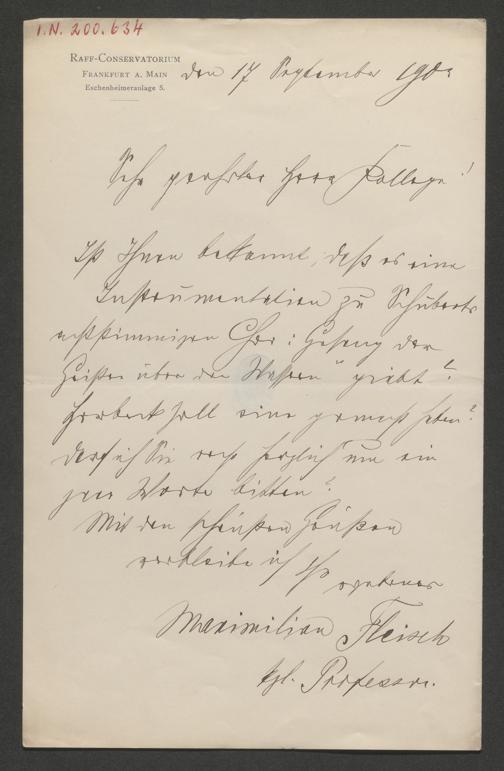 I.N. 200.634
RAFF-CONSERVATORIUM
FRANKFURT A. MAIN
Eschenheimeranlage 5.
den 17 September
Sehr geehrter Herr Kollege!
Ist Ihnen bekannt, daß es eine
Instrumentation zu Schuberts
achtstimmigen Chor: Gesang der
Geister über den Wassern" giebt?
Herbeck soll eine gemacht haben?
Darf ich Sie recht herzlich um ein
paar Worte bitten?
Mit den schönsten Grüßen
verbleibe ich Ihr
ergebener
Maximilian Fleisch
kgl. Professor.